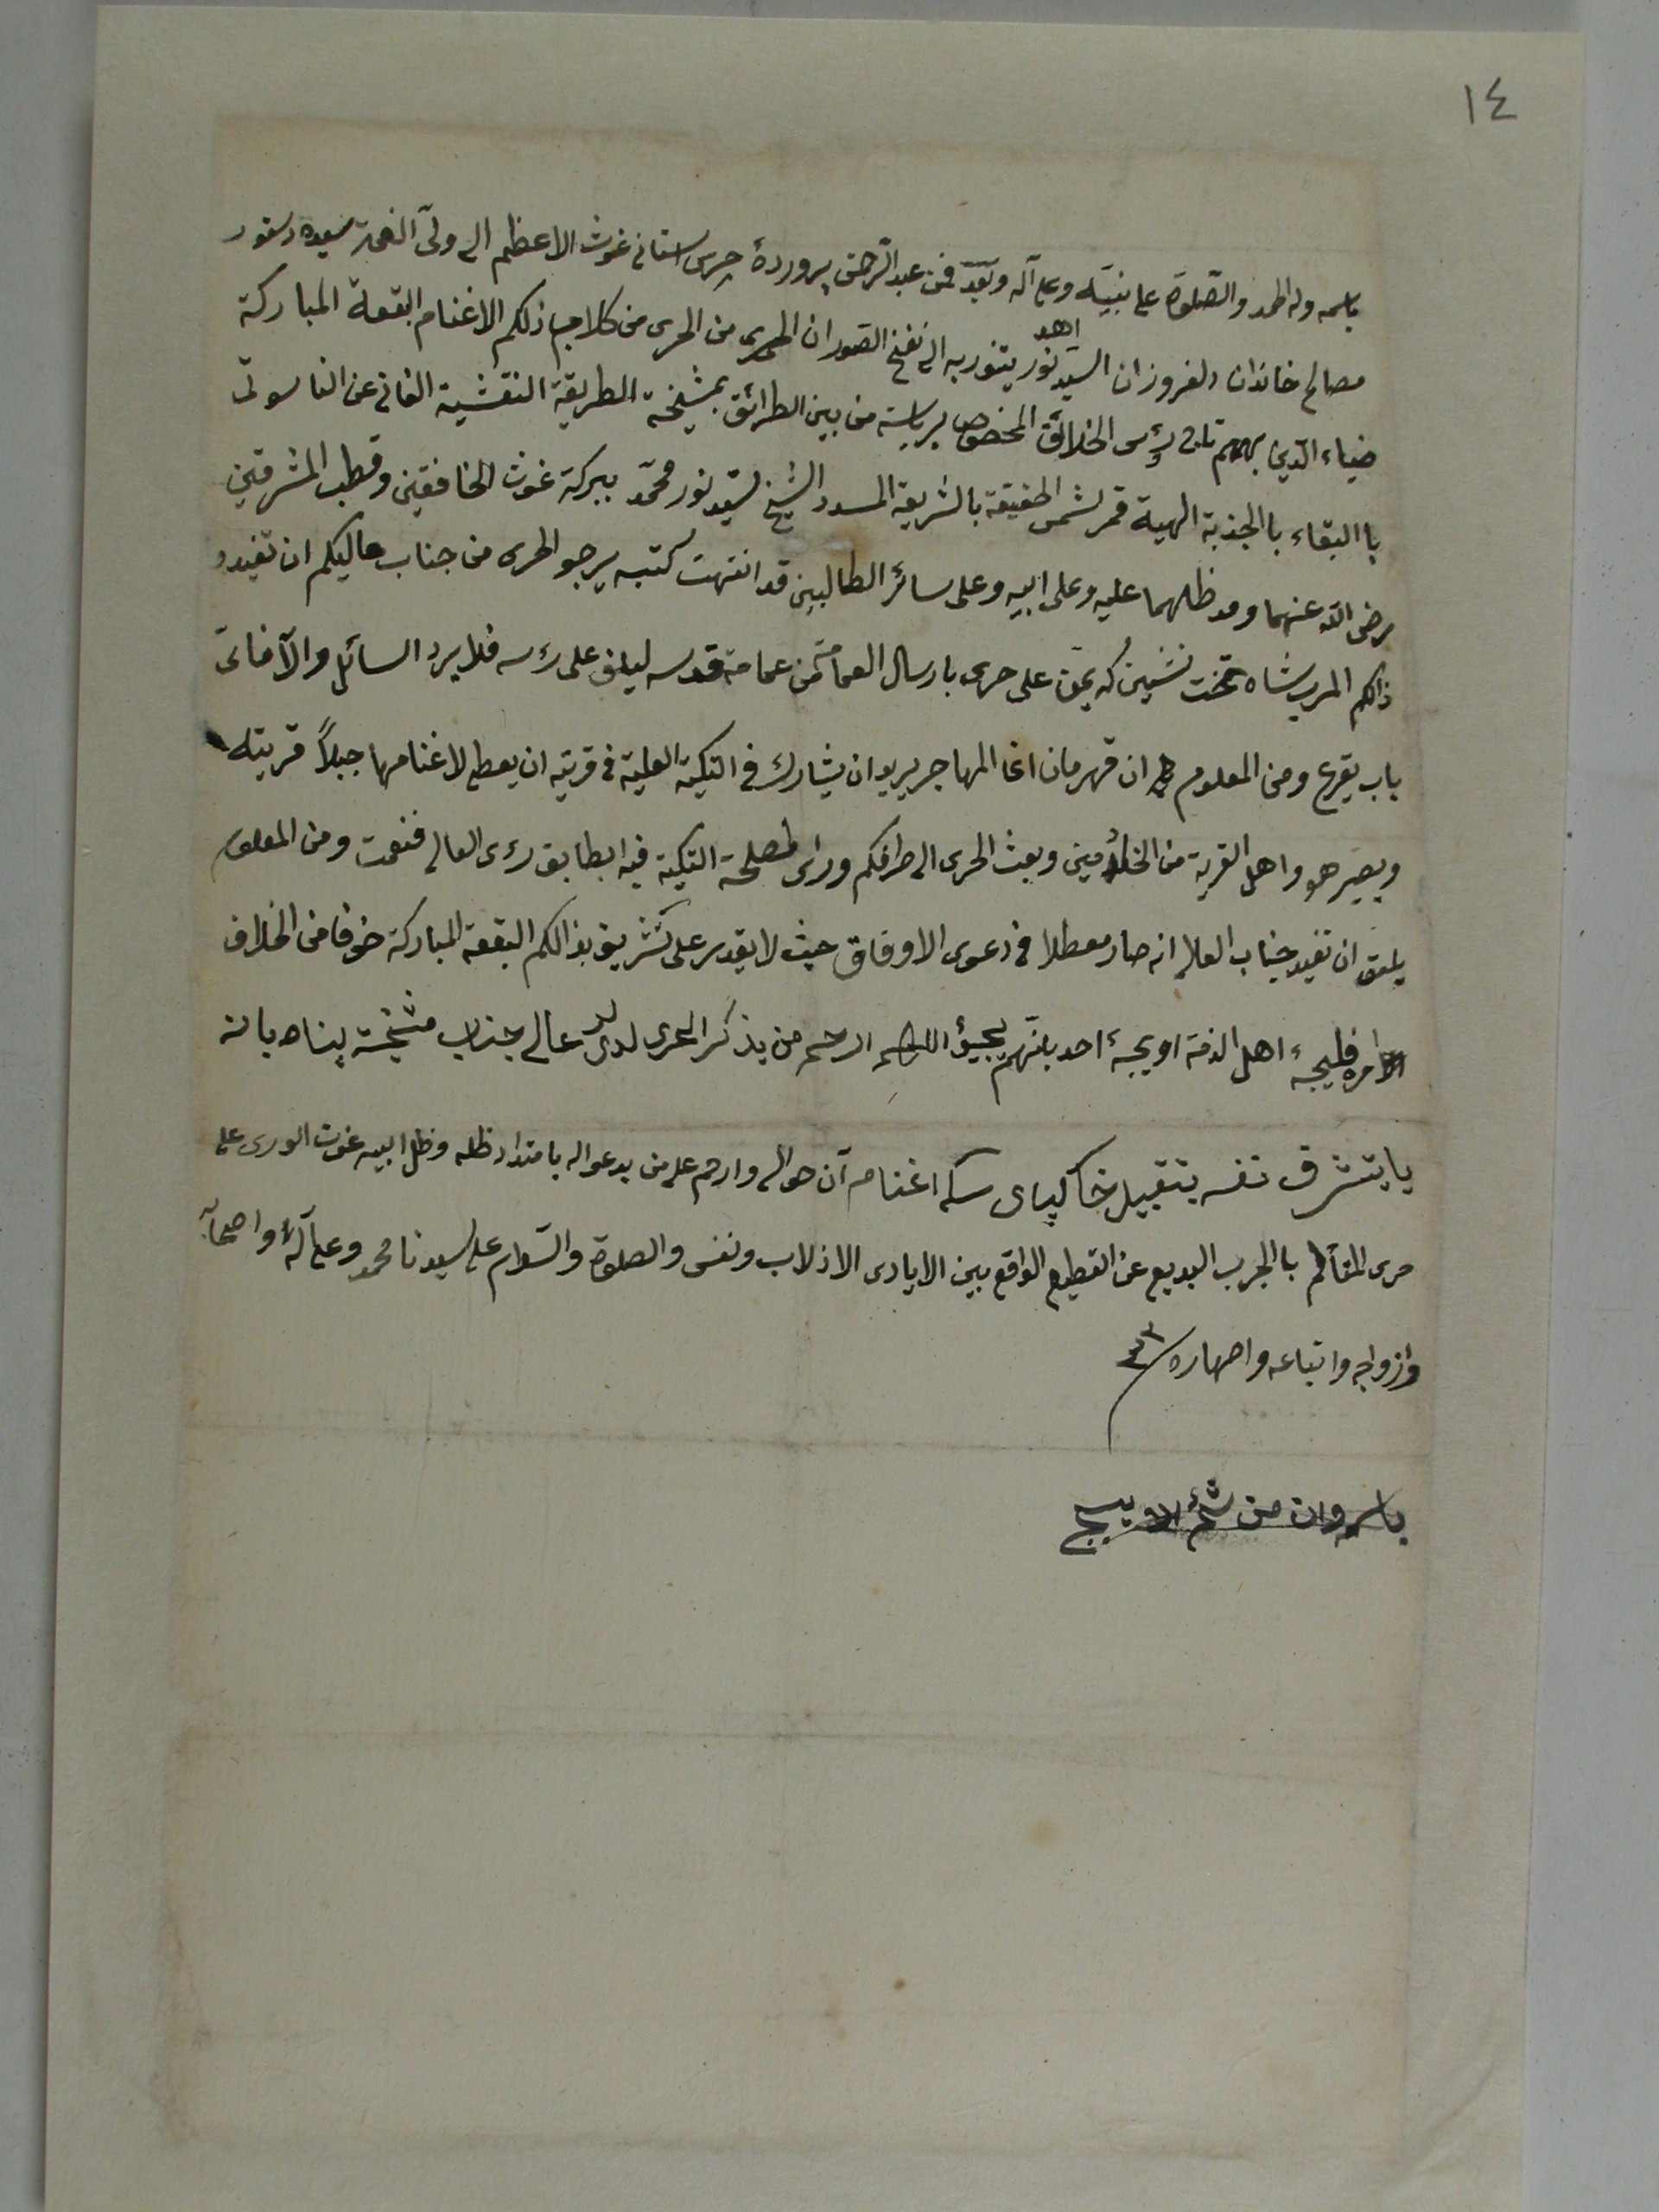 ١٤
باسمه وله الحمد والصّلوة على نبيّه وعلى آله وبعد فمن عبد الرّحمن پروردۀ جرى استانى غوث الاعظم الى ولىّ النعمة سيده دستور
مصالح خاندان دلفروزان السيد نور اهد يتنور به الى نفخ الصور ان الجرى من الجرى من كلاب ذلكم الاغنام البقعة المباركة
ضياء الذين بهم تاج رؤس الخلائق المخصوص برياسته من بين الطرائق بمشيخة الطريقة النقشية الفانى عن الناسوتى
باالبقاء باالجذبة الهية قمر شمس الحقيقة بالشريعة المسدد الشيخ لسيد نور محمّد ببركة غوث الخافقين وقطب المشرقين
رضى الله عنهما ومد ظلهما عليه وعلى ابيه وعلى سائر الطالبين قد انتهت كتبه يرجو الجرى من جناب عاليكم ان تفيدو
ذالكم المرب شاه تخت نشين كه يمن على جرى بارسال العمامة من عمامة قدسه ليلف على رءسه فلا يرد السائل والآفاتى
باب يقرع ومن المعلوم ان قهرمان اغا المهاجر يريد ان يشارك فى التكية العلية فى قريته ان يعطى لاغنامها جبلاً قريته
ويصير هو واهل القرية من الخادمين وبعث الجرى الى طرفكم ورأى مصلحة التكية فيه ابطابق رءى العالى فنعمت ومن المعلوم
يلمق ان تفيد جناب العالى انه صار معطلا فى دعوى الاوفاق حيث لا يقدر على تشريف بذالكم البقعة المباركة خوفا من الخلاف
امره فليجىء اهل الذمة او يجىء احد بانهم يجيئو اللهم ارحم من يذكر الجرى لدى عالى جناب مشيخة پناه بانه
يا يتشرف نفسه بتقبيل خاكپاى سكه اغنام آن حوالى وارحم على من يدعو له بامتداد ظله وظل ابيه غوث الورى على
جرى المتألم باالجرب البديع عن القطيع الواقع بين الايادى الاذلاب ونفسى والصلوة والسّلام على سيدنا محمد وعلى آله واصحابه
وازواجه واتباعه واصهاره
باسمه وان من شئ الا يسبح